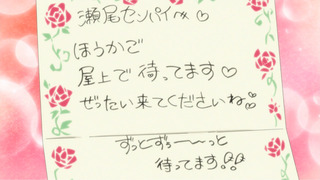 瀬尾センパイへ♡
ほうかご
屋上で待ってます♡
ぜったい来てくださいね♡
ずっとずぅーーーっと
待ってます!!